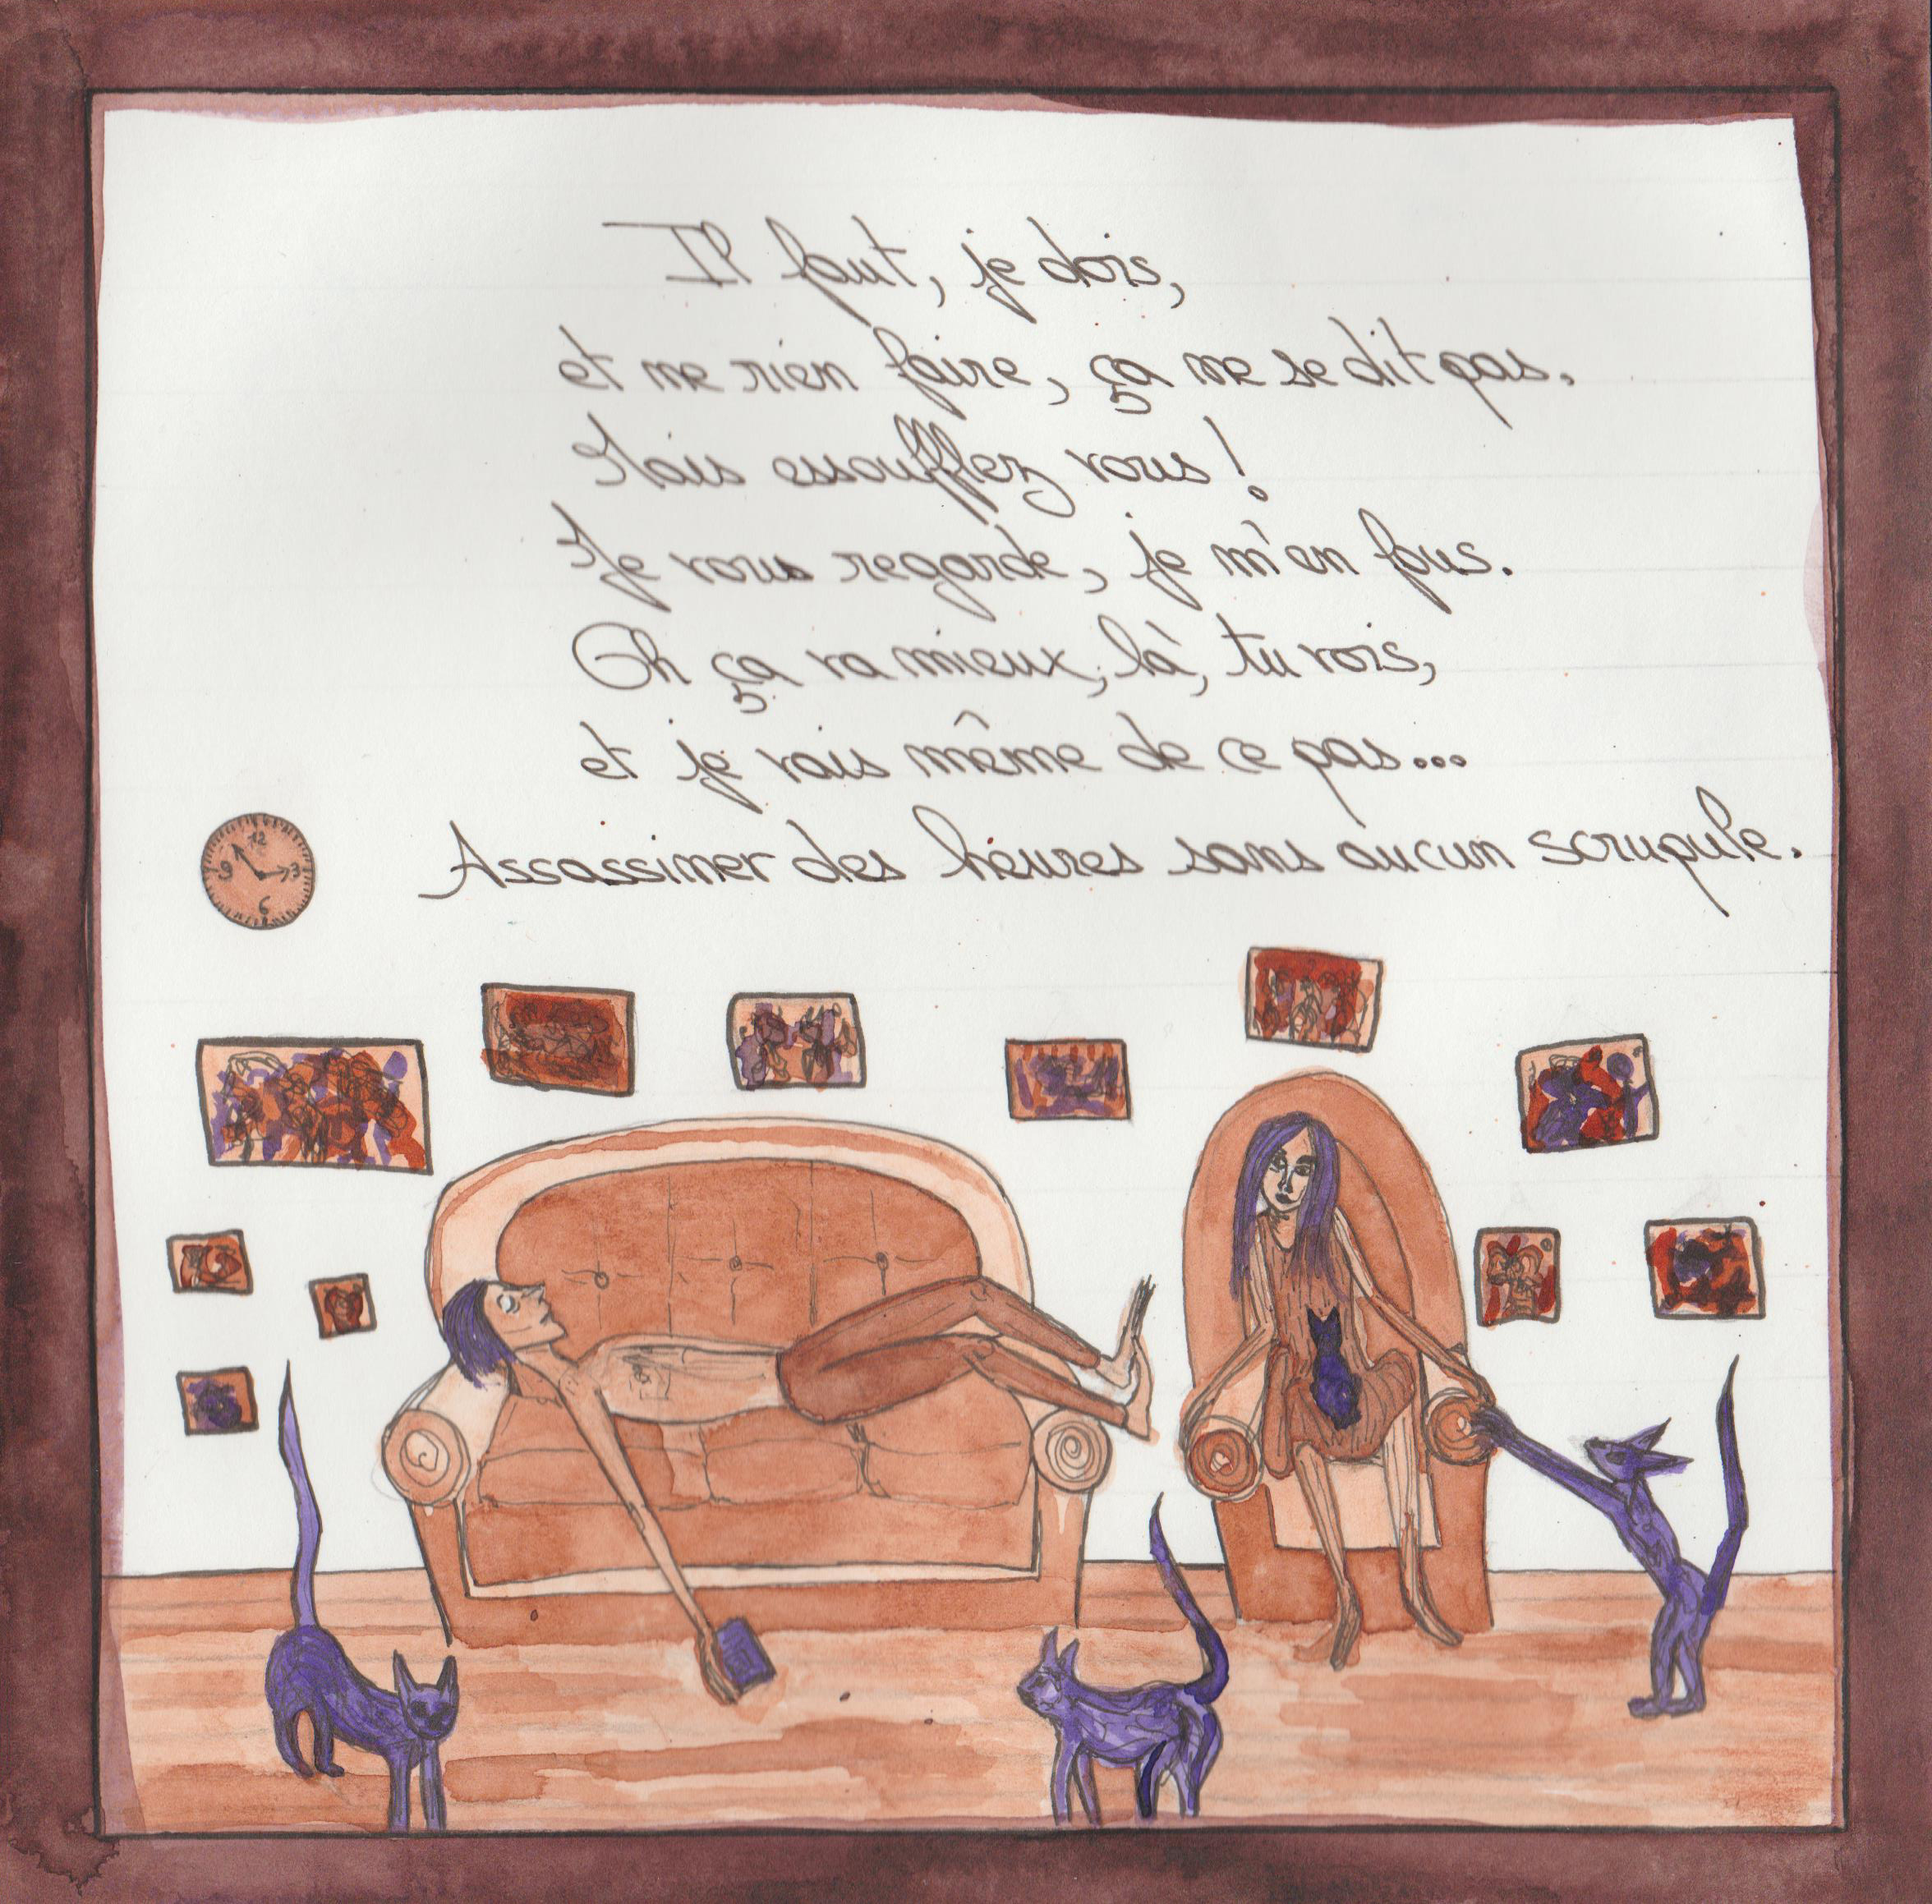 Il faut, je dois,
et ne rien faire, ça ne se dit pas.
Mais essoufflez vous !
Je vous regarde, je m'en fous.
Oh ça va mieux, là, tu vois,
et je vais même de ce pas...
Assassiner des heures sans aucun scrupule.
12
9 3
6